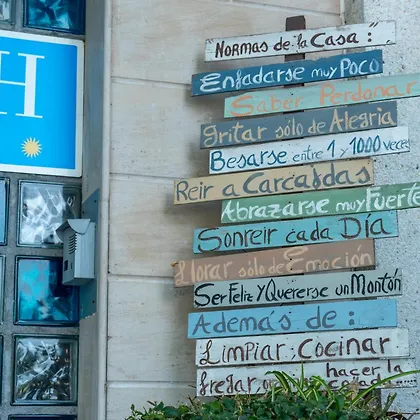 H
Normas de la Casa:
Enfadarse muy Poco
Saber Perdonar
Gritar sólo de Alegria
Besarse entre 1 y 1000 veces
Reir a Carcajadas
Abrazarse muy Fuerte
Sonreir cada Día
Llorar sólo de Emoción
Ser Feliz y Quererse un Montón
Además de:
Limpiar Cocinar
Fregar hacer la